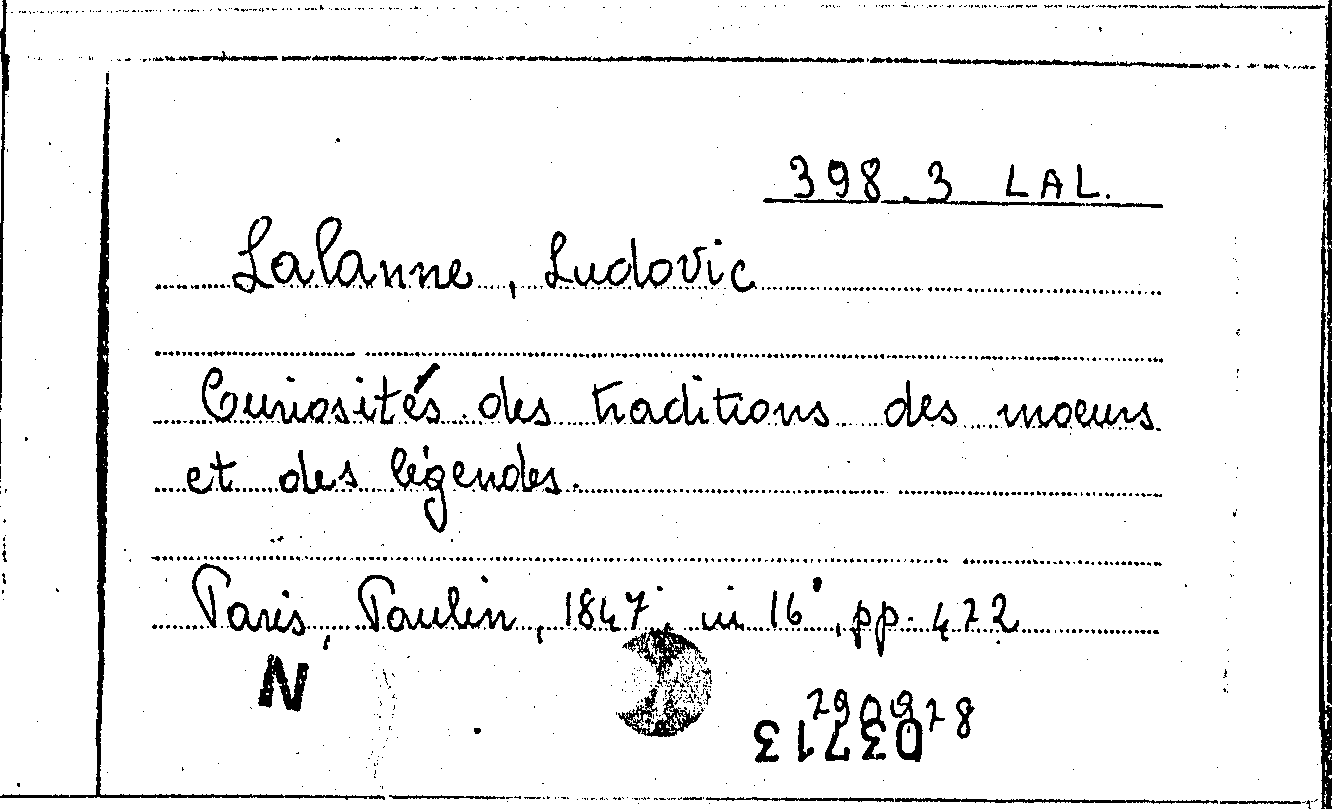 398.3 LAL.
Lalanne, Ludovic
Curiosités des traditions des moeurs
et des légendes.
Paris, Paulin, 1847, in 16°, pp. 472
N